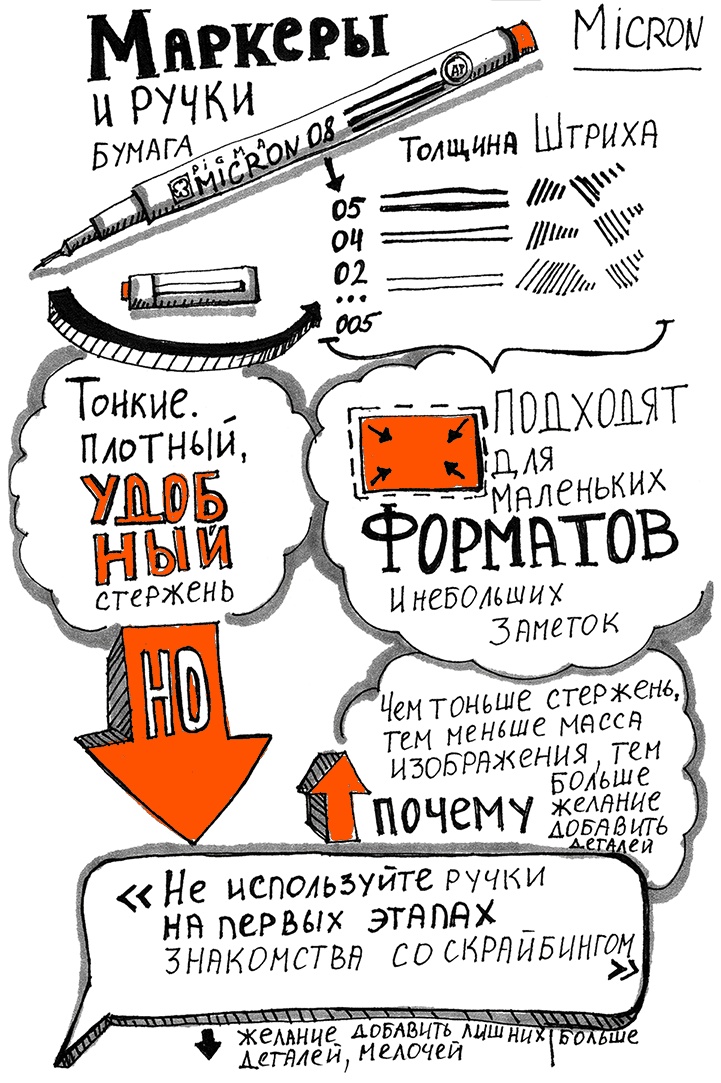 Маркеры
и ручки
бумага
Micron
PIGMA
MICRON 08
AP
Толщина Штриха
05
04
02
...
005
Тонкие.
плотный,
удоб
ный
стержень
Подходят
для
маленьких
форматов
и небольших
заметок
НО
Чем тоньше стержень,
тем меньше масса
изображения, тем
больше
желание
добавить
деталей
почему
« Не используйте ручки
на первых этапах
знакомства со скрайбингом
»
желание добавить лишних
деталей, мелочей
больше